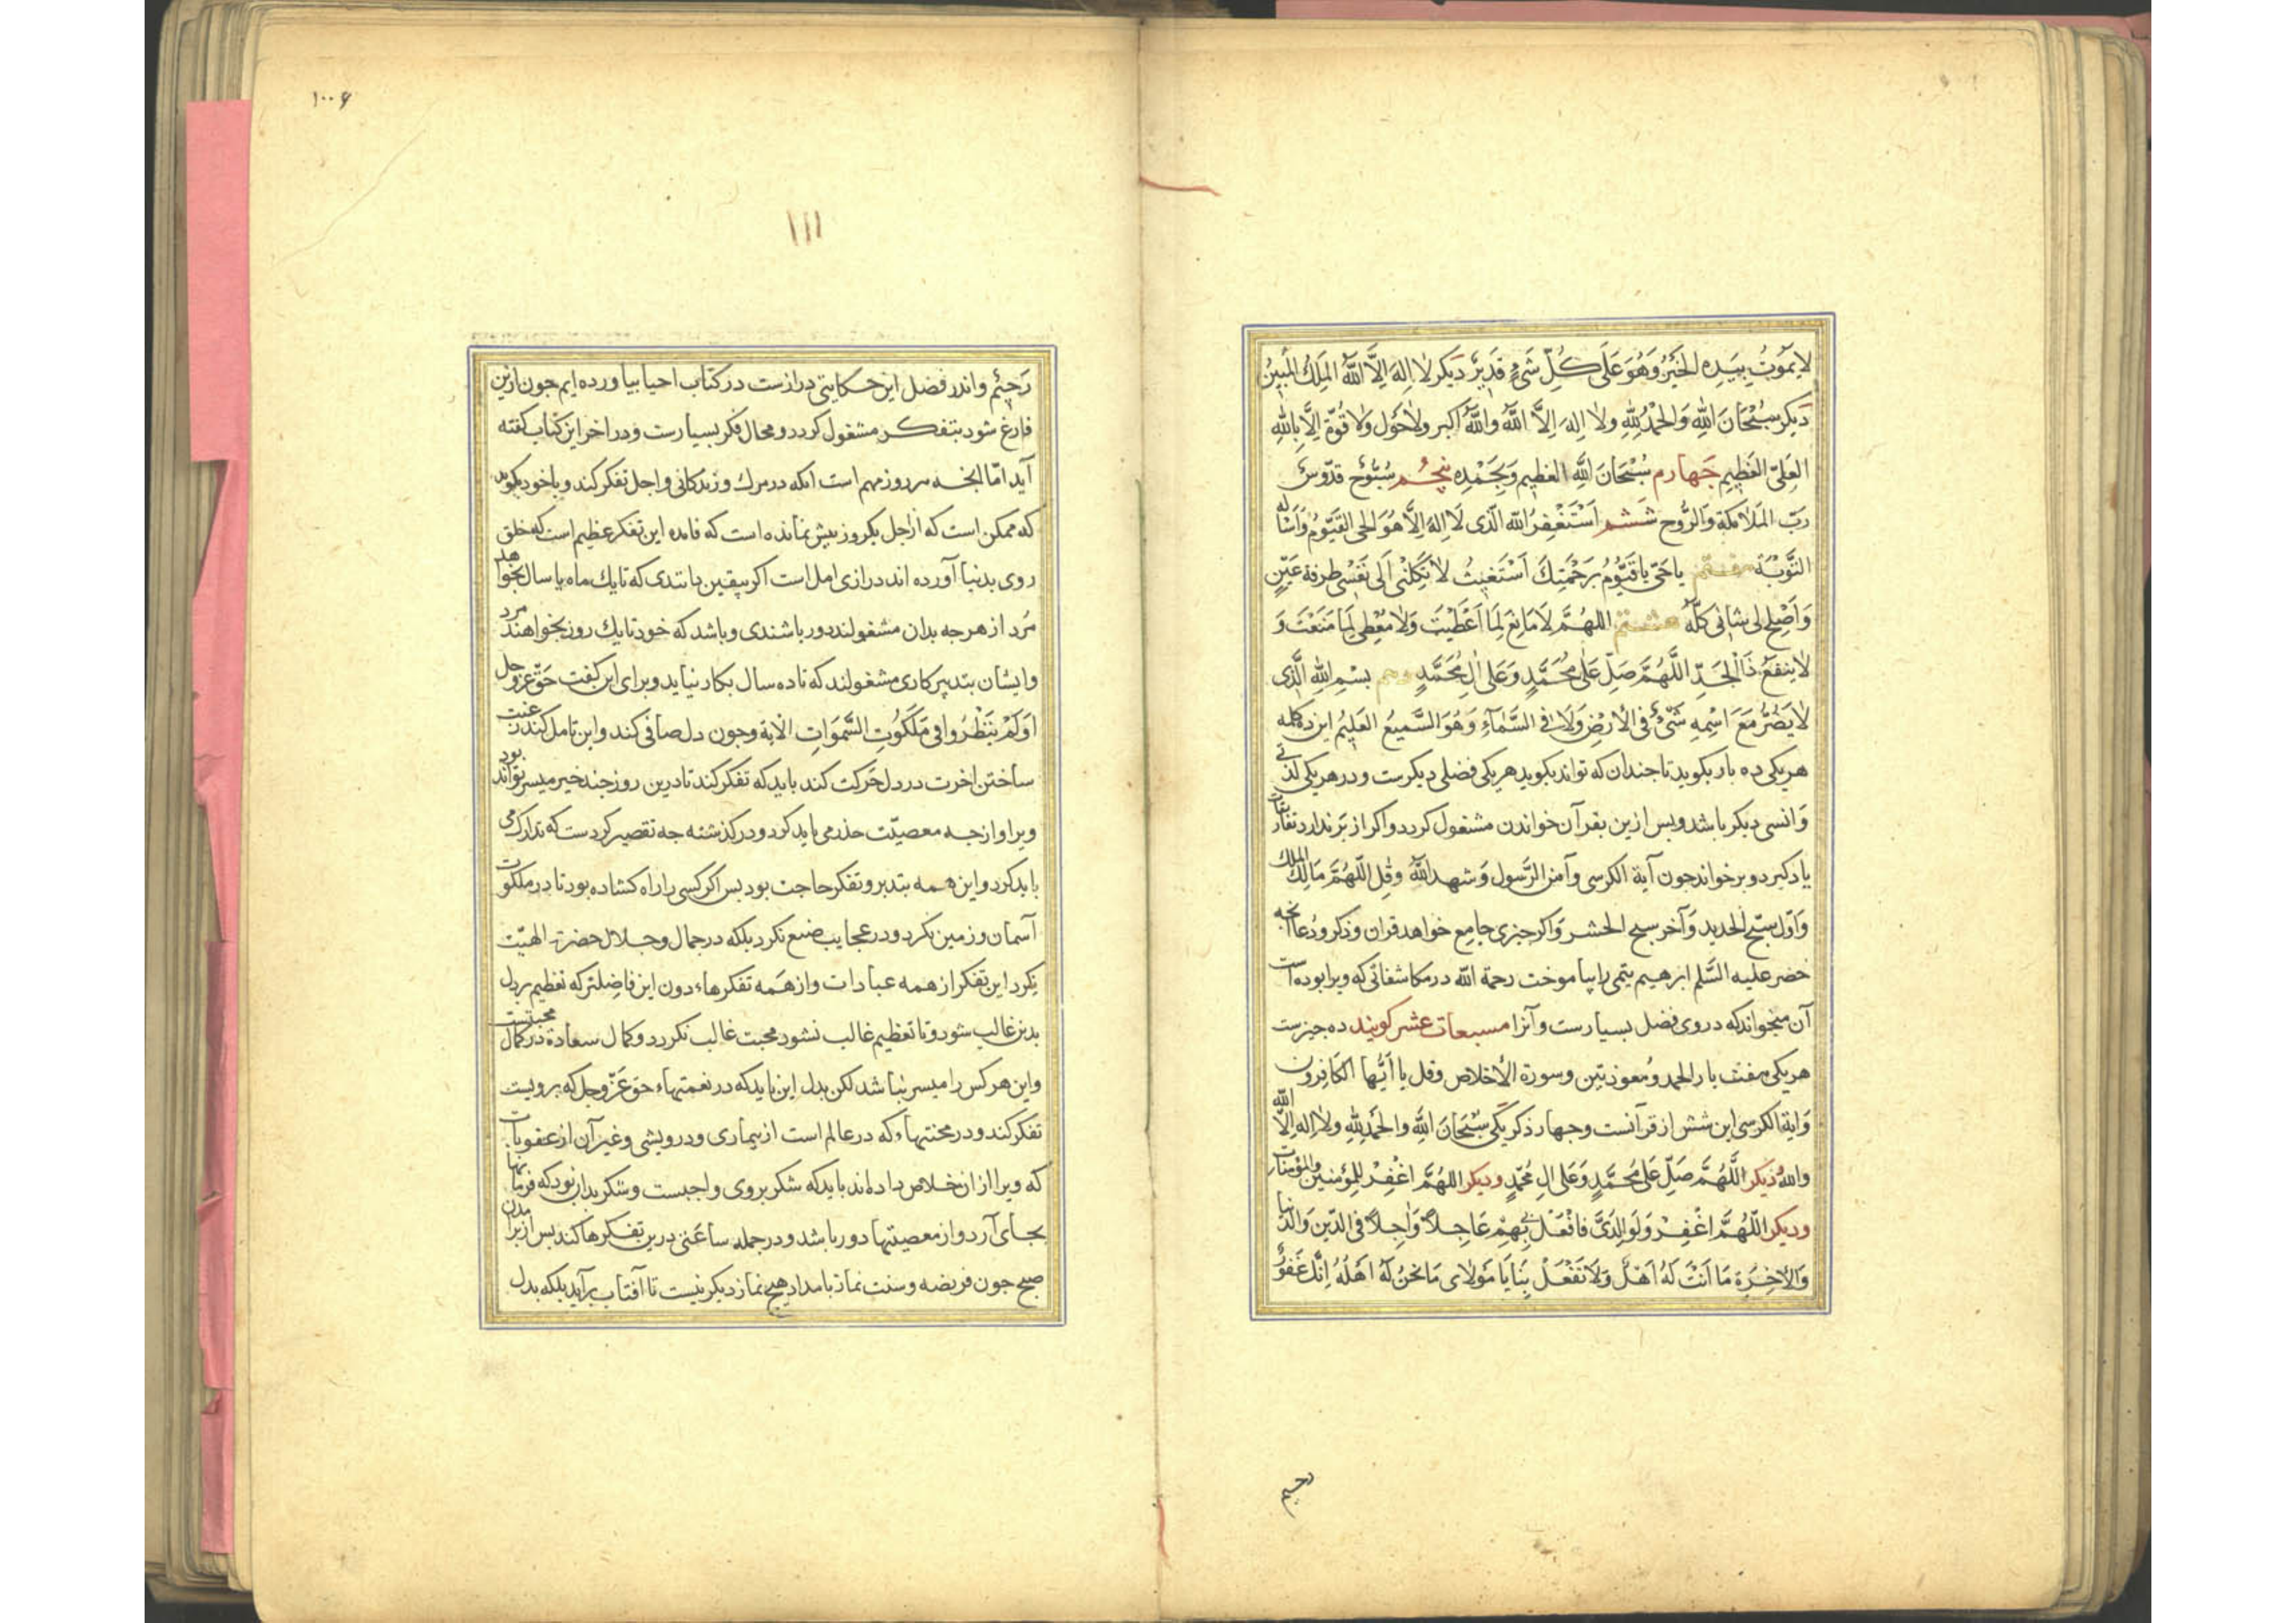 لا یَمُوتُ بِیَدِهِ الخَیْرُ وَهُوَ عَلَی کُلِّ شَیْءٍ قَدِیْرٌ دیکر لا اِلهَ اِلَّا اللّٰهُ المَلِكُ المُبِینُ
دیکر سُبْحَانَ اللّٰهِ وَالحَمْدُ لِلّٰهِ ولا اِلهَ اِلَّا اللّٰهُ واللّٰهُ اکبر ولا حَول ولا قُوّة اِلَّا بِاللّٰهِ
العَلِیّ العَظِیم جَهارم سُبْحَانَ اللّٰهِ العَظِیم وَبِحَمْدِه پنجُم سُبُّوحٌ قدّوسٌ
رَبّ المَلَائِکَةِ وَالرُّوح ششم اَسْتَغْفِرُ اللّٰه الَّذی لَا اِلهَ اِلَّا هُوَ الحی القَیّومُ وَأسْأله
التَّوْبَة هفتم یا حَیّ یا قَیُّوْمُ بِرَحْمَتِكَ اَسْتَغِیْثُ لا تَکِلْنِی اَلی نَفْسِی طرفة عَیْنٍ
وَاَصْلِح لی شانی کلّهُ هشتم اللهُمَّ لَا مَانِعَ لِمَا اَعْطَیْتَ وَلا مُعْطِی لِمَا مَنَعْتَ وَ
لَا یَنفَعُ ذَا الْجَدِّ اللّٰهُمَّ صَلِّ عَلٰی مُحَمَّدٍ وَعَلی الِ مُحَمَّدٍ دهم بسْمِ اللّٰهِ الَّذی
لَا یَضُرُّ مَعَ اسْمِهِ شَیْءٌ فی الأَرْضِ وَلَا فی السَّمَآءِ وَهُوَ السَّمیعُ العَلِیمُ این ده کلمه
هریکی ده بار بکوید تا جندان که تواند بکوید هریکی فضلی دیکرست و در هریکی لذتی
وَانسی دیکر باشد و بس ازین بقرآن خواندن مشغول کردد و اکر از بَر ندارد تفاریق
یاد کیرد و برخواند جون آیة الکرسی وآمن الرَّسول وَشهد اللّٰهُ وَقُلِ اللّٰهُمَّ مَالِكَ المُلك
وَاوّل سبّح الحدید وَآخر سبح الحشر وَاکر جیزی جامع خواهد قران وذکر ودُعا آنجه
خضر علیه السَّلم ابرهیم یتمی را بیاموخت رحمة اللّه در مکاشفاتی که ویرا بوده است
آن میخواند که در وی فضل بسیارست وآنرا مسبعات عشر کویند ده جیزست
هریکی هفت بار الحمد ومُعوذتین وسورة الأخلاص وقل یا اَیُّها الکَافرون
وَایة الکرسی این شش از قرآنست وجهار ذکر یکی سُبْحَانَ اللّٰهِ والحَمْدُ لِلّٰهِ ولا اِله اِلَّا اللّٰه
واللّٰهُ دیکر اللّٰهُمَّ صَلِّ عَلی مُحَمَّدٍ وَعَلی الِ مُحَمّدٍ ودیکر اللهُمَّ اغْفِرْ لِلمُؤمنین والمؤمنات
ودیکر اللّٰهُمَّ اغْفِرْ وَلَوالِدَیَّ فافْعَلْ بی بِهِمْ عَاجِلاً وَاٰجِلاً فی الدِّین وَالدُّنیا
وَالأخِرَة مَا اَنْتَ لَهُ اَهْلٌ وَلَا تَفْعَلْ بِنَا یَا مَولای مَا نَحْنُ لَهُ اَهْلُهُ اِنَّكَ غَفُورٌ
رحیم
۱۰۰۶
۱۱۱
رَحِیْم واندر فضل این حکایتی درازست در کتاب احیا بیاورده ایم جون ازین
فارغ شود بتفکر مشغول کردد ومجال فکر بسیارست و در اخر این کتاب کفته
آید امّا الجه هر روز مهم است انکه در مرك وزندکانی واجل تفکر کند وباخود بکوید
که ممکن است که از اجل یکروز بیش نمانده است که فایده این تفکر عظیم است که خلق
روی بدنیا آورده اند درازی امل است اکر بیقین دانندی که تا یك ماه یا سال بخواهند
مُرد از هرجه بدان مشغولند دور باشندی وباشد که خود تا یك روز بخواهند مرد
وایشان بتدبیر کاری مشغولند که تا ده سال بکار نیاید وبرای این کفت حقّ عزّوجل
اَوَلَمْ یَنْظُرُوا فِی مَلَکُوتِ السَّمٰوَاتِ الأیة وجون دل صافی کند واین تامل کند رغبت
ساختن اخرت در دل حَرکت کند باید که تفکر کند تا درین روز جند خیر میسر تواند بود
ویرا واز جه معصیّت حذر می باید کرد و در کذشته جه تقصیر کردست که تدارك می
باید کرد واین همه بتدبر وتفکر حاجت بود بس اکر کسی را راه کشاده بود تا در ملکوت
آسمان وزمین نکرد ودر عجایب صنع نکرد بلکه در جمال وجلال حضرة الهیّت
نکرد این تفکر از همه عبادات واز هَمه تفکرهاء دون این فاضِلتر که تعظیم بر دل
بدین غالب شود وتا تعظیم غالب نشود محبت غالب نکردد وکمال سعادة در کمال محبتست
واین هر کس را میسر نباشد لکن بدل این باید که در نعمتهاء حق عَزّ وجل که برویست
تفکر کند ودر محنتهاء که در عالم است از بیماری ودرویشی وغیر آن از عقوبات
که ویرا از ان خلاص داده اند باید که شکر بروی واجبست وشکر بدان بود که فرمانها
بجای آرد واز معصیتها دور باشد ودر جمله ساعتی درین تفکرها کند بس از برامدن
صبح جون فریضه وسنت نماز بامداد هیج نماز دیکر نیست تا آفتاب برآید بلکه بدل